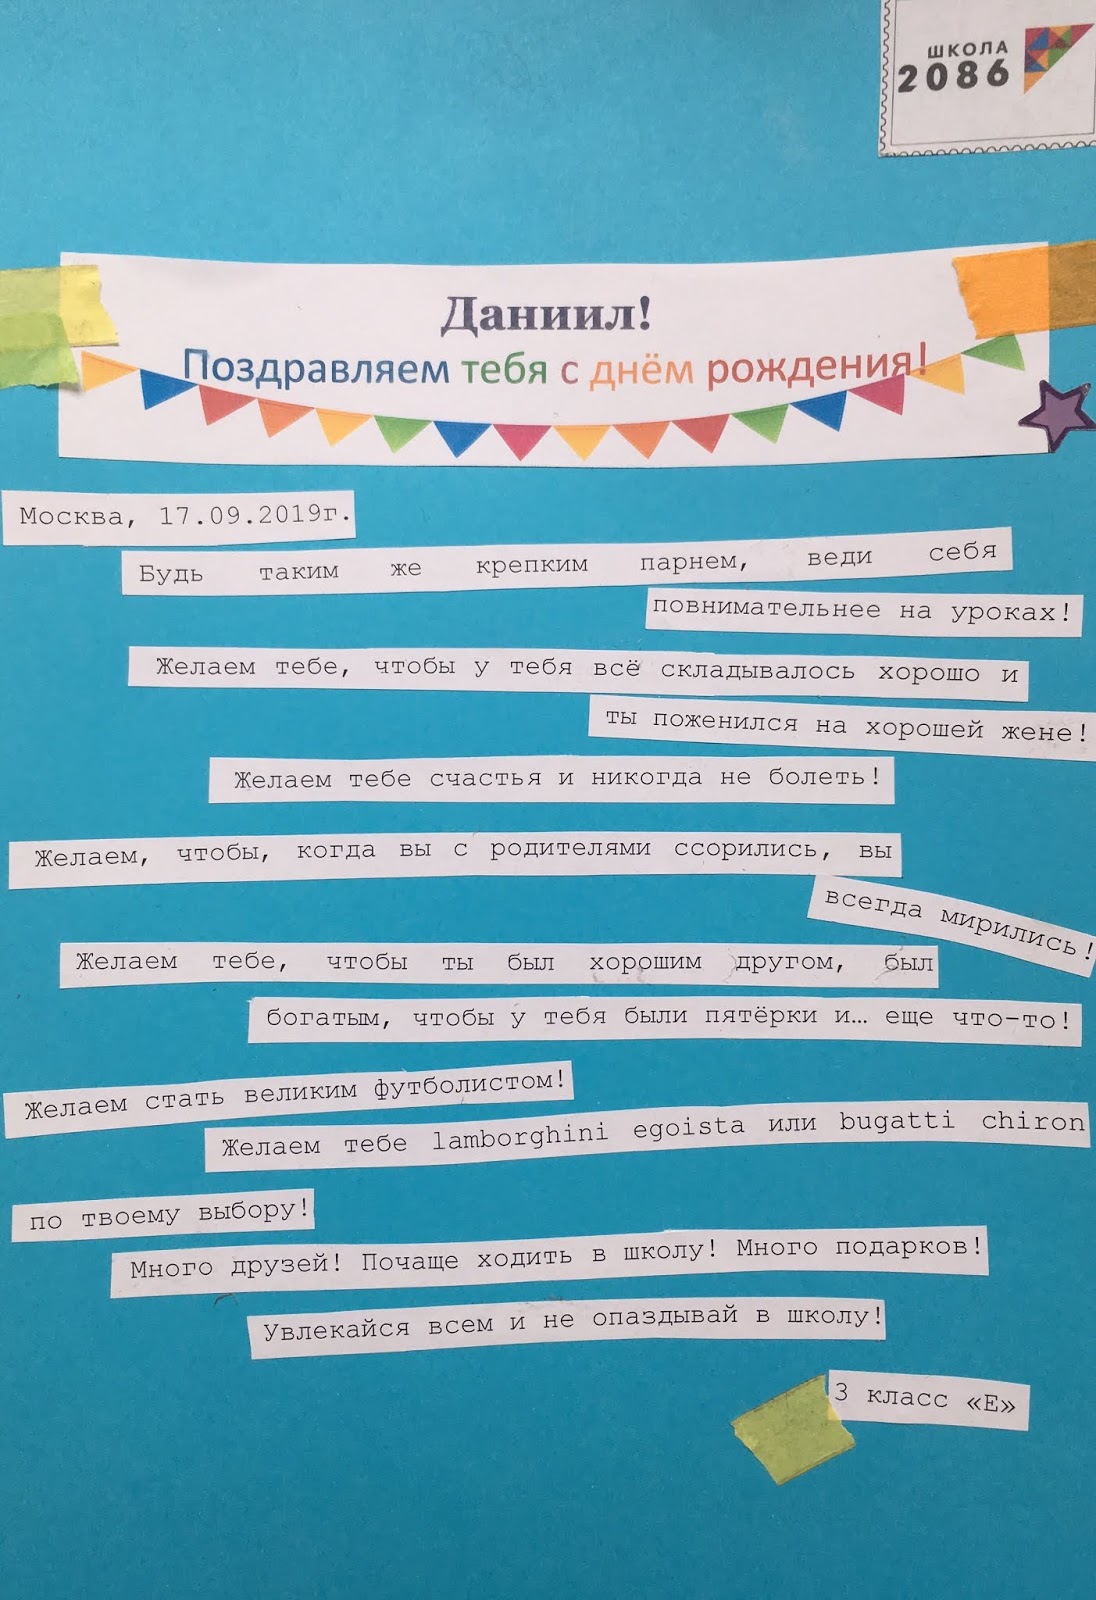 ШКОЛА
2086
Даниил!
Поздравляем тебя с днём рождения!
Москва, 17.09.2019г.
Будь таким же крепким парнем, веди себя
повнимательнее на уроках!
Желаем тебе, чтобы у тебя всё складывалось хорошо и
ты поженился на хорошей жене!
Желаем тебе счастья и никогда не болеть!
Желаем, чтобы, когда вы с родителями ссорились, вы
всегда мирились!
Желаем тебе, чтобы ты был хорошим другом, был
богатым, чтобы у тебя были пятёрки и… еще что-то!
Желаем стать великим футболистом!
Желаем тебе lamborghini egoista или bugatti chiron
по твоему выбору!
Много друзей! Почаще ходить в школу! Много подарков!
Увлекайся всем и не опаздывай в школу!
3 класс «Е»